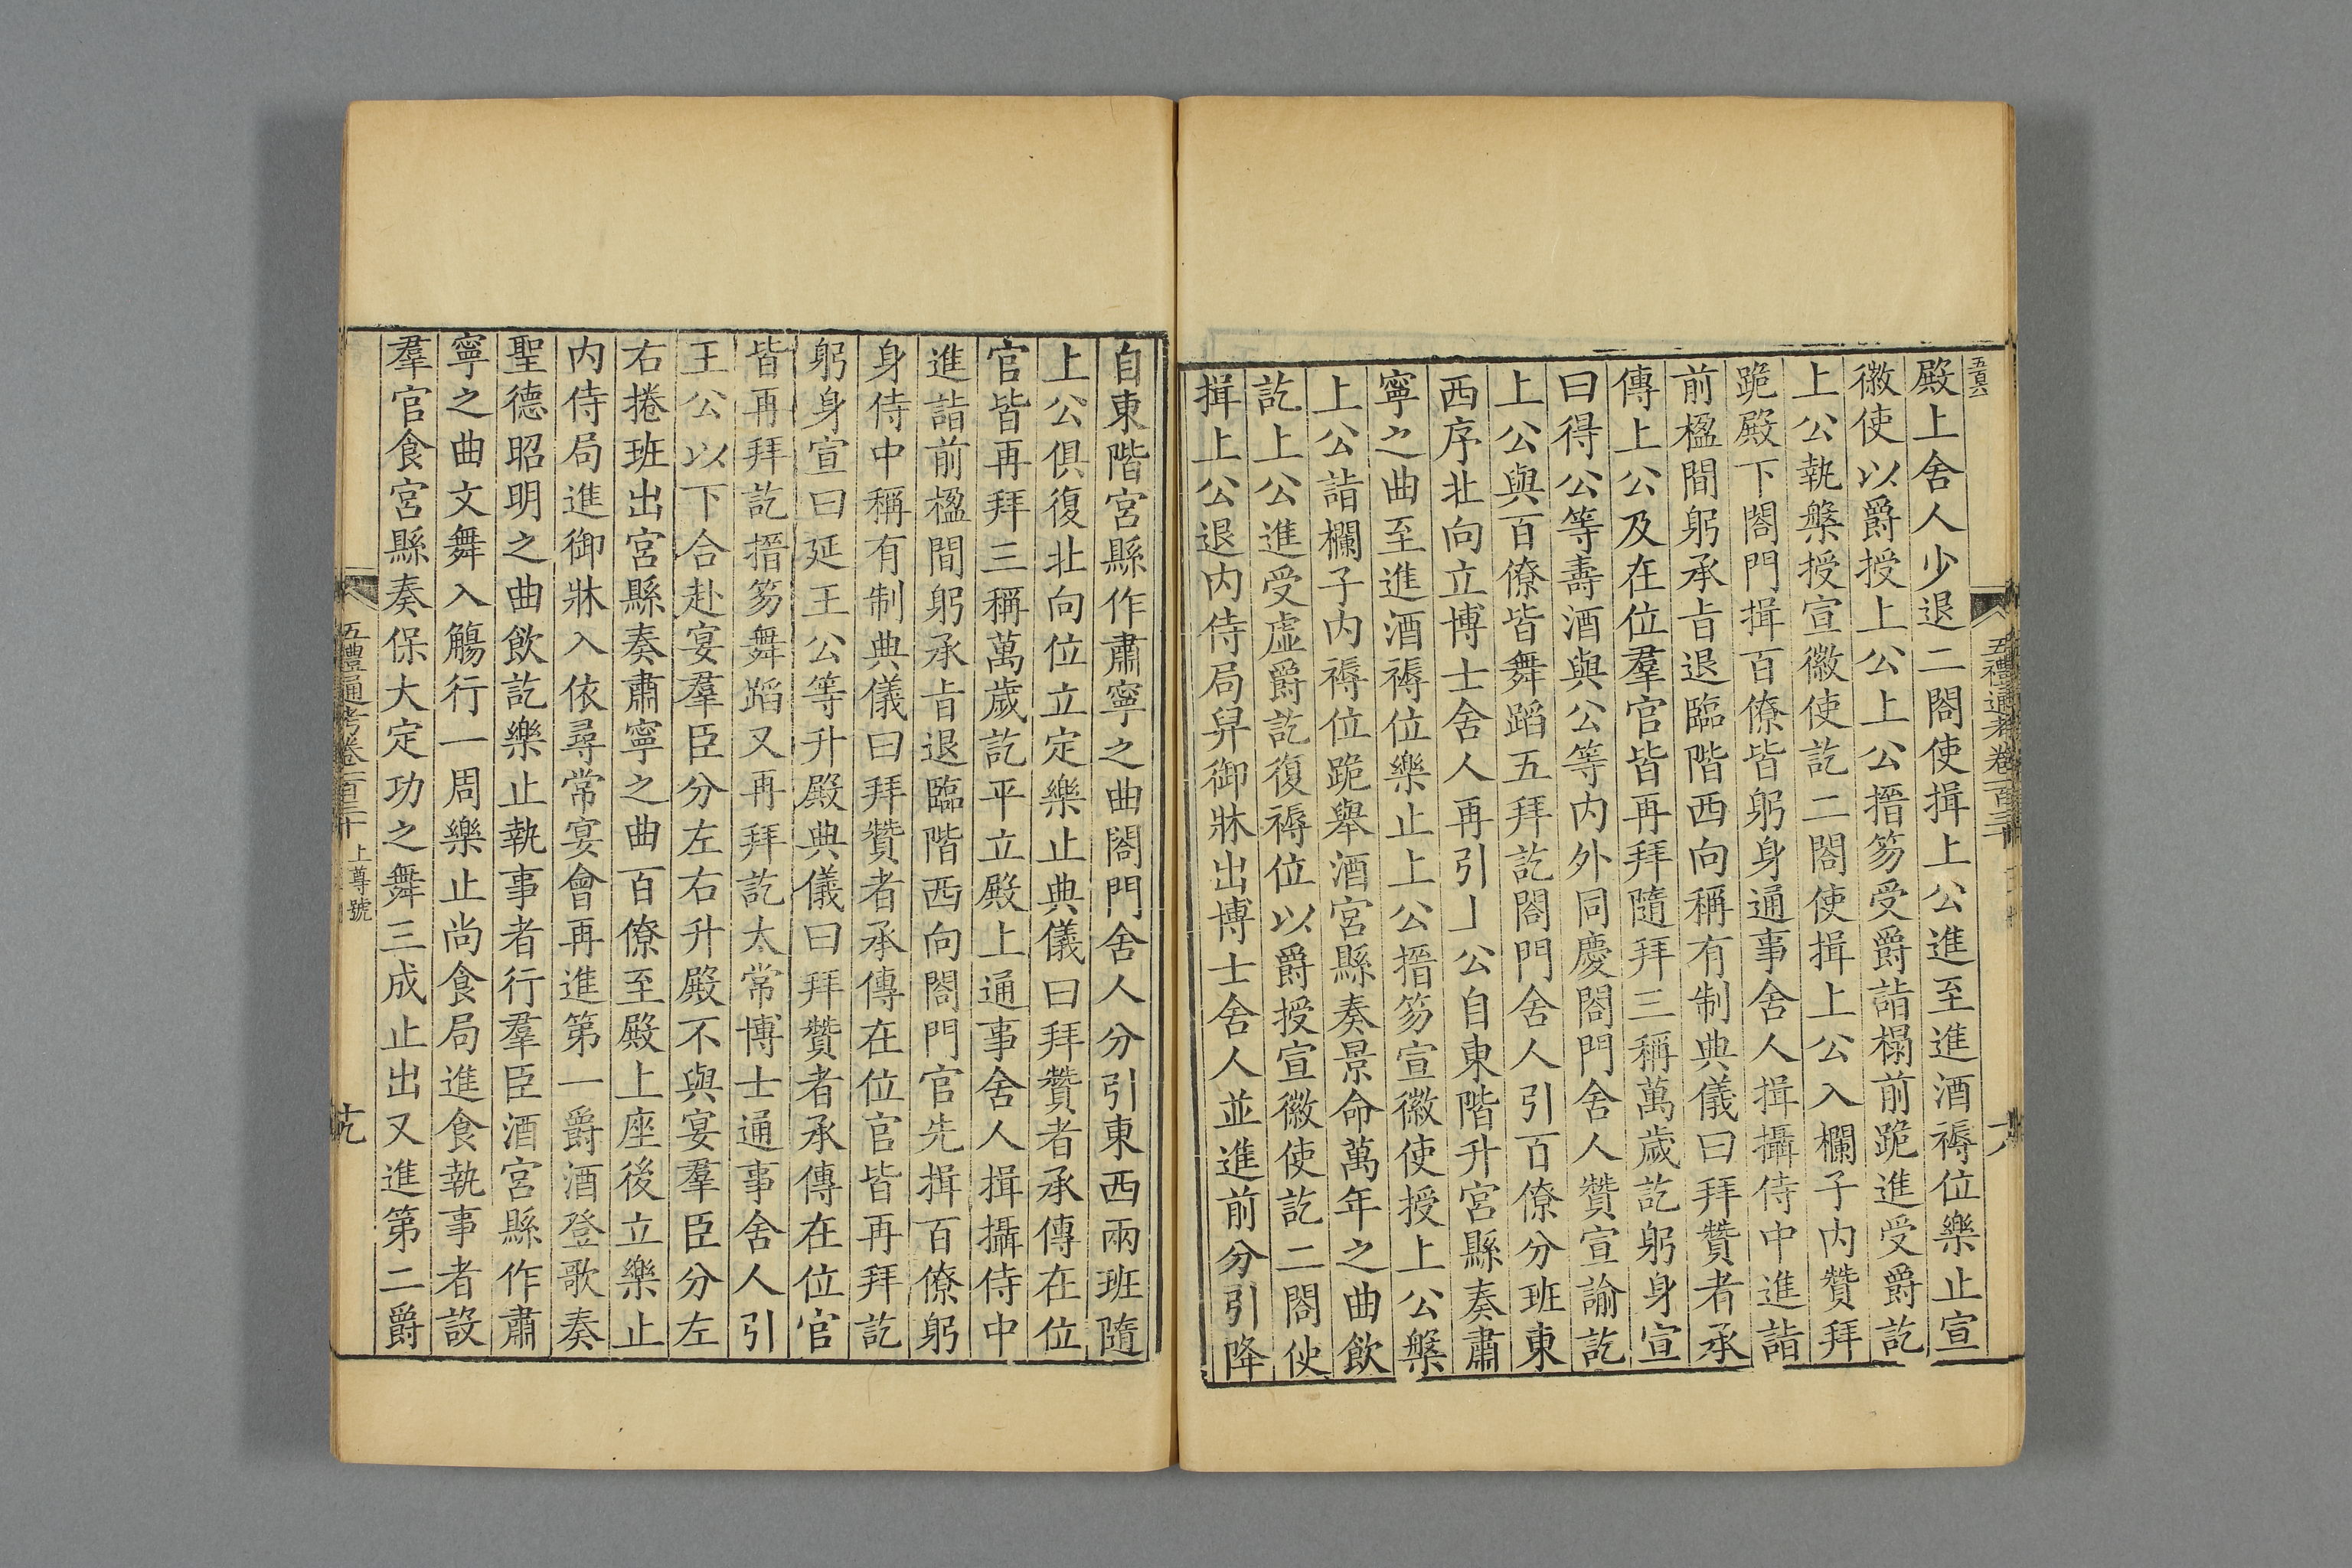 五百六
五禮通考卷一百三十
殿上舍人少退二閤使揖上公進至進酒褥位樂止宣
徽使以爵授上公上公搢笏受爵詣榻前跪進受爵訖
上公執槃授宣徽使訖二閤使揖上公入欄子內贊拜
跪殿下閤門揖百僚皆躬身通事舍人揖攝侍中進詣
前楹間躬承㫖退臨階西向稱有制典儀曰拜贊者承
傳上公及在位羣官皆再拜隨拜三稱萬歲訖躬身宣
曰得公等壽酒與公等內外同慶閤門舍人贊宣諭訖
上公與百僚皆舞蹈五拜訖閤門舍人引百僚分班東
西序北向立博士舍人再引上公自東階升宮縣奏肅
寧之曲至進酒褥位樂止上公搢笏宣徽使授上公槃
上公詣欄子內褥位跪舉酒宮縣奏景命萬年之曲飲
訖上公進受虛爵訖復褥位以爵授宣徽使訖二閤使
揖上公退內侍局舁御牀出博士舍人並進前分引降
自東階宮縣作肅寧之曲閤門舍人分引東西兩班隨
上公俱復北向位立定樂止典儀曰拜贊者承傳在位
官皆再拜三稱萬歲訖平立殿上通事舍人揖攝侍中
進詣前楹間躬承㫖退臨階西向閤門官先揖百僚躬
身侍中稱有制典儀曰拜贊者承傳在位官皆再拜訖
躬身宣曰延王公等升殿典儀曰拜贊者承傳在位官
皆再拜訖搢笏舞蹈又再拜訖太常博士通事舍人引
王公以下合赴宴羣臣分左右升殿不與宴羣臣分左
右捲班出宮縣奏肅寧之曲百僚至殿上座後立樂止
內侍局進御牀入依尋常宴會再進第一爵酒登歌奏
聖德昭明之曲飲訖樂止執事者行羣臣酒宮縣作肅
寧之曲文舞入觴行一周樂止尚食局進食執事者設
羣官食宮縣奏保大定功之舞三成止出又進第二爵
五禮通考卷一百三十 上尊號